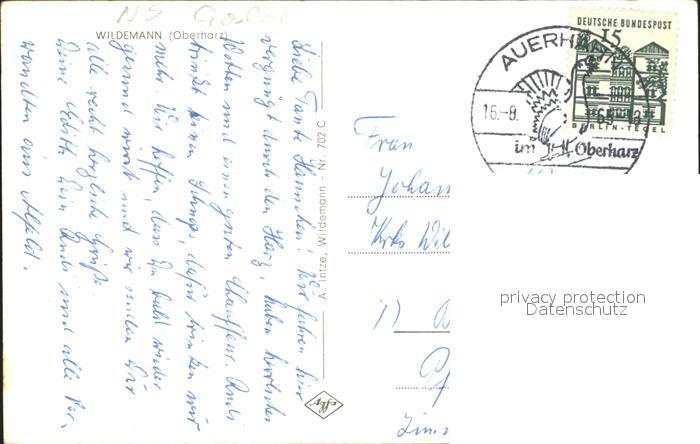 NS Goslar
WILDEMANN (Oberharz)
Liebe Tante Hannchen! Wir fahren hier
vergnügt durch den Harz, haben herrliches
Wetter und einen guten Chauffeur. Rudi
trinkt keinen Schnaps, dafür trinken wir
mehr. Wir hoffen, dass Du bald wieder
gesund wirst und wir senden Dir
alle recht herzliche Grüße.
Deine Edith, Dein Rudi und alle Ver-
wandten aus Alfeld.
A. Intze, Wildemann - Nr. 702 C
Agfa
DEUTSCHE BUNDESPOST
15
BERLIN-TEGEL
AUERHAHN
16.-8.
im Oberharz
Frau
Johan
privacy protection
Datenschutz